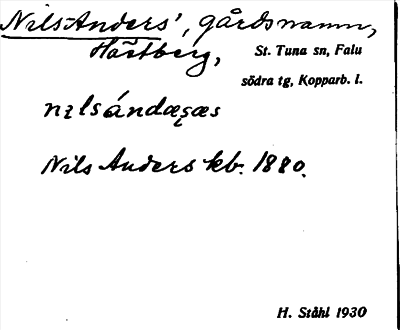 Nils-Anders', gårdsnamn,
Håstberg, St. Tuna sn, Falu
södra tg, Kopparb. l.
nilsándæșæs
Nils Anders kb. 1880.
H. Ståhl 1930